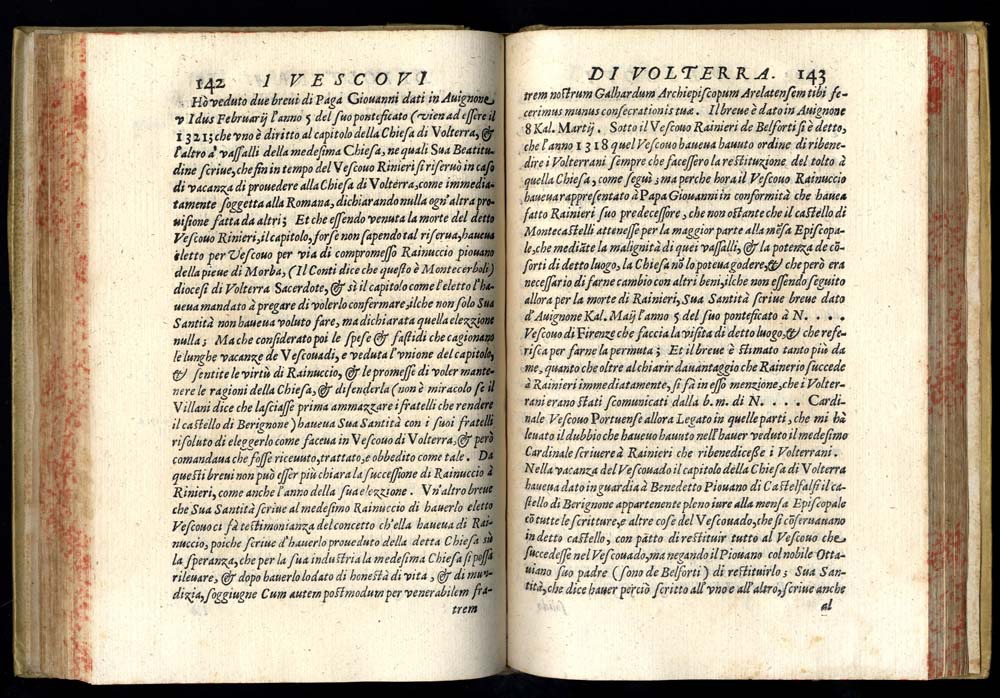 142 I VESCOVI
Hò veduto due breui di Papa Giouanni dati in Auignone
v Idus Februarij l'anno 5 del suo ponteficato (vien ad essere il
1321) che vno è diritto al capitolo della Chiesa di Volterra, &
l'altro a' vassalli della medesima Chiesa, ne quali Sua Beatitu-
dine scriue, che fin in tempo del Vescouo Rinieri si riseruò in caso
di vacanza di prouedere alla Chiesa di Volterra, come immedia-
tamente soggetta alla Romana, dichiarando nulla ogn'altra pro-
uisione fatta da altri; Et che essendo venuta la morte del detto
Vescouo Rinieri, il capitolo, forse non sapendo tal riserua, haueua
eletto per Vescouo per via di compromesso Rainuccio piouano
della pieue di Morba, (Il Conti dice che questo è Montecerboli)
diocesi di Volterra Sacerdote, & sì il capitolo come l'eletto l'ha-
ueua mandato à pregare di volerlo confermare, ilche non solo Sua
Santità non haueua voluto fare, ma dichiarata quella elezzione
nulla; Ma che considerato poi le spese & fastidi che cagionano
le lunghe vacanze de Vescouadi, e veduta l'vnione del capitolo,
& sentite le virtù di Rainuccio, & le promesse di voler mante-
nere le ragioni della Chiesa, & difenderla (non è miracolo se il
Villani dice che lasciasse prima ammazzare i fratelli che rendere
il castello di Berignone) haueua Sua Santità con i suoi fratelli
risoluto di eleggerlo come faceua in Vescouo di Volterra, & però
comandaua che fosse riceuuto, trattato, e obbedito come tale. Da
questi breui non può esser più chiara la successione di Rainuccio à
Rinieri, come anche l'anno della sua elezzione. Vn'altro breue
che Sua Santità scriue al medesimo Rainuccio di hauerlo eletto
Vescouo ci fà testimonianza del concetto ch'ella haueua di Rai-
nuccio, poiche scriue d'hauerlo proueduto della detta Chiesa sù
la speranza, che per la sua industria la medesima Chiesa si possa
rileuare, & dopo hauerlo lodato di honestà di vita, & di mun-
dizia, soggiugne Cum autem postmodum per venerabilem fra-
trem
DI VOLTERRA. 143
trem nostrum Galhardum Archiepiscopum Arelatensem tibi fe-
cerimus munus consecrationis tuæ. Il breue è dato in Auignone
8 Kal. Martij. Sotto il Vescouo Rainieri de Belforti si è detto,
che l'anno 1318 quel Vescouo haueua hauuto ordine di ribene-
dire i Volterrani sempre che facessero la restituzione del tolto à
quella Chiesa, come seguì; ma perche hora il Vescouo Rainuccio
haueua rappresentato à Papa Giouanni in conformità che haueа
fatto Rainieri suo predecessore, che non ostante che il castello di
Montecastelli attenesse per la maggior parte alla mẽsa Episcopa-
le, che mediãte la malignità di quei vassalli, & la potenza de cõ-
sorti di detto luogo, la Chiesa nõ lo poteua godere, & che però era
necessario di farne cambio con altri beni, ilche non essendo seguito
allora per la morte di Rainieri, Sua Santità scriue breue dato
d'Auignone Kal. Maij l'anno 5 del suo ponteficato à N. . . .
Vescouo di Firenze che faccia la visita di detto luogo, & che refe-
risca per farne la permuta; Et il breue è stimato tanto più da
me, quanto che oltre al chiarir dauantaggio che Rainerio succede
à Rainieri immediatamente, si fà in esso menzione, che i Volter-
rani erano stati scomunicati dalla b. m. di N. . . . Cardi-
nale Vescouo Portuense allora Legato in quelle parti, che mi hà
leuato il dubbio che haueuo hauuto nell'hauer veduto il medesimo
Cardinale scriuere à Rainieri che ribenedicesse i Volterrani.
Nella vacanza del Vescouado il capitolo della Chiesa di Volterra
haueua dato in guardia à Benedetto Piouano di Castelfalfi il ca-
stello di Berignone appartenente pleno iure alla mensa Episcopale
cõ tutte le scritture, e altre cose del Vescouado, che si cõseruauano
in detto castello, con patto di restituir tutto al Vescouo che
succedesse nel Vescouado, ma negando il Piouano col nobile Otta-
uiano suo padre (sono de Belforti) di restituirlo; Sua San-
tità, che dice hauer perciò scritto all'vno e all'altro, scriue anche
al